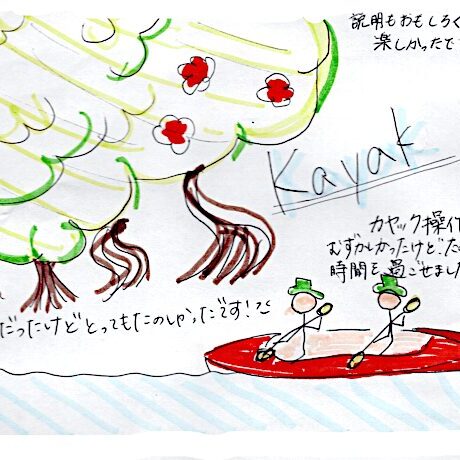 説明もおもしろく
楽しかったで
Kayak
カヤック操作
むずかしかったけど、た
時間を過ごせました
だったけどとってもたのしかったです!